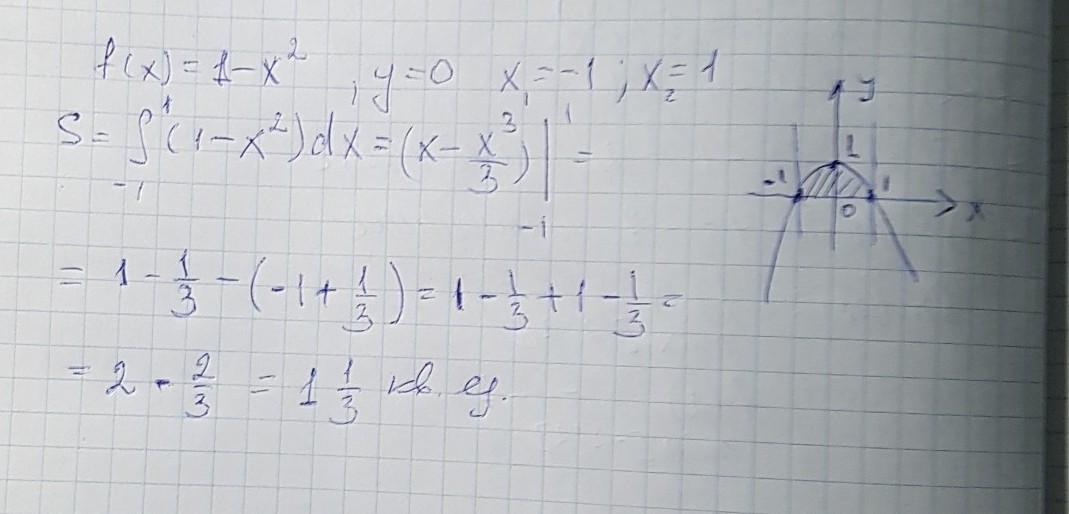 f(x) = 1 - x² , y = 0 x₁ = -1 ; x₂ = 1
S = ∫₋₁¹ (1 - x²) dx = (x - x³/3) |₋₁¹ =
= 1 - 1/3 - (-1 + 1/3) = 1 - 1/3 + 1 - 1/3 =
= 2 - 2/3 = 1 1/3 кв. ед.
y
1
-1
1
0
x